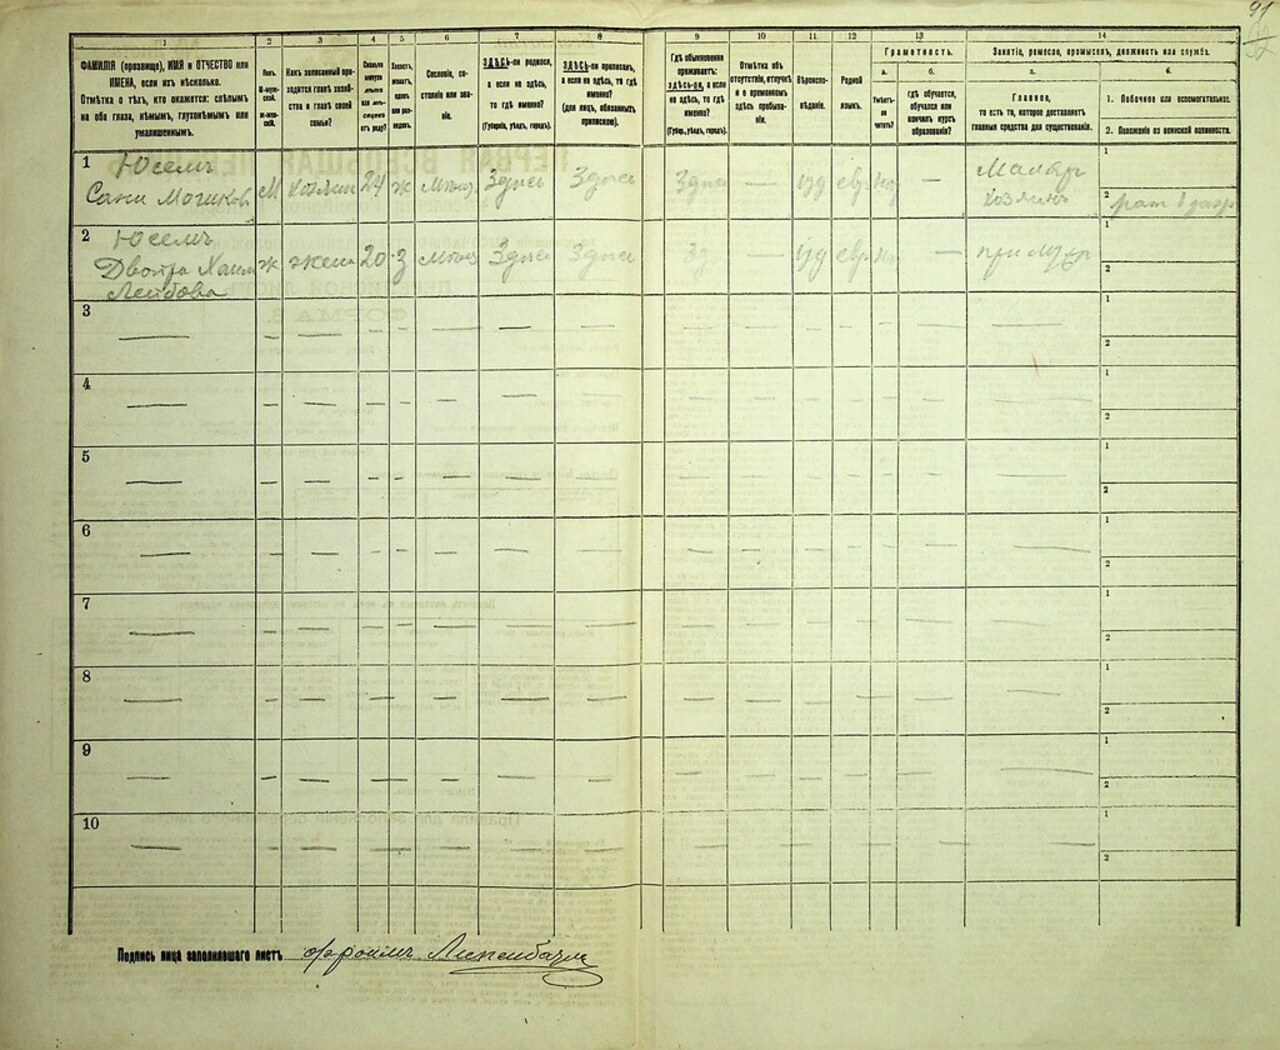 91
1 2 3 4 5 6 7 8 9 10 11 12 13 14
ФАМИЛІЯ (прозвище), ИМЯ и ОТЧЕСТВО или
ИМЕНА, если ихъ нѣсколько.
Отмѣтка о тѣхъ, кто окажется: слѣпымъ
на оба глаза, нѣмымъ, глухонѣмымъ или
умалишеннымъ.
Полъ.
М-мужской.
Ж-женскій.
Какъ записанный приходится
главѣ хозяйства и главѣ своей
семьи?
Сколько минуло лѣтъ или мѣсяцевъ отъ роду?
Холостъ, женатъ, вдовъ или разведенъ.
Сословіе, состояніе или званіе.
ЗДѢСЬ-ли родился,
а если не здѣсь,
то гдѣ именно?
(Губернія, уѣздъ, городъ).
ЗДѢСЬ-ли приписанъ,
а если не здѣсь, то гдѣ
именно?
(для лицъ, обязанныхъ
припискою).
Гдѣ обыкновенно
проживаетъ:
здѣсь-ли, а если
не здѣсь, то гдѣ
именно?
(Губерн., уѣздъ, городъ).
Отмѣтка объ
отсутствіи, отлучкѣ
и о временномъ
здѣсь пребываніи.
Вѣроисповѣданіе.
Родной
языкъ.
Грамотность.
а.
Умѣетъ-ли
читать?
б.
гдѣ обучается,
обучался или
кончилъ курсъ
образованія?
Занятіе, ремесло, промыселъ, должность или служба.
а.
Главное,
то есть то, которое доставляетъ
главныя средства для существованія.
б.
1. Побочное или вспомогательное.
2. Положеніе по воинской повинности.
1 Юсемъ М хозяин 24 ж Здѣсь Здѣсь Здѣсь — іуд евр — Маляръ 1
хозяинъ 2
2 Юсемъ ж жена 20 З Здѣсь Здѣсь — іуд евр — при мужѣ 1
Двойра Хаим 2
Лейбова
3 — — — — — — — — — — — — — — — 1
2
4 — — — — — — — — — — — — — — — 1
2
5 — — — — — — — — — — — — — — — 1
2
6 — — — — — — — — — — — — — — — 1
2
7 — — — — — — — — — — — — — — — 1
2
8 — — — — — — — — — — — — — — — 1
2
9 — — — — — — — — — — — — — — — 1
2
10 — — — — — — — — — — — — — — — 1
2
Подпись лица заполнявшаго листъ Фроимъ